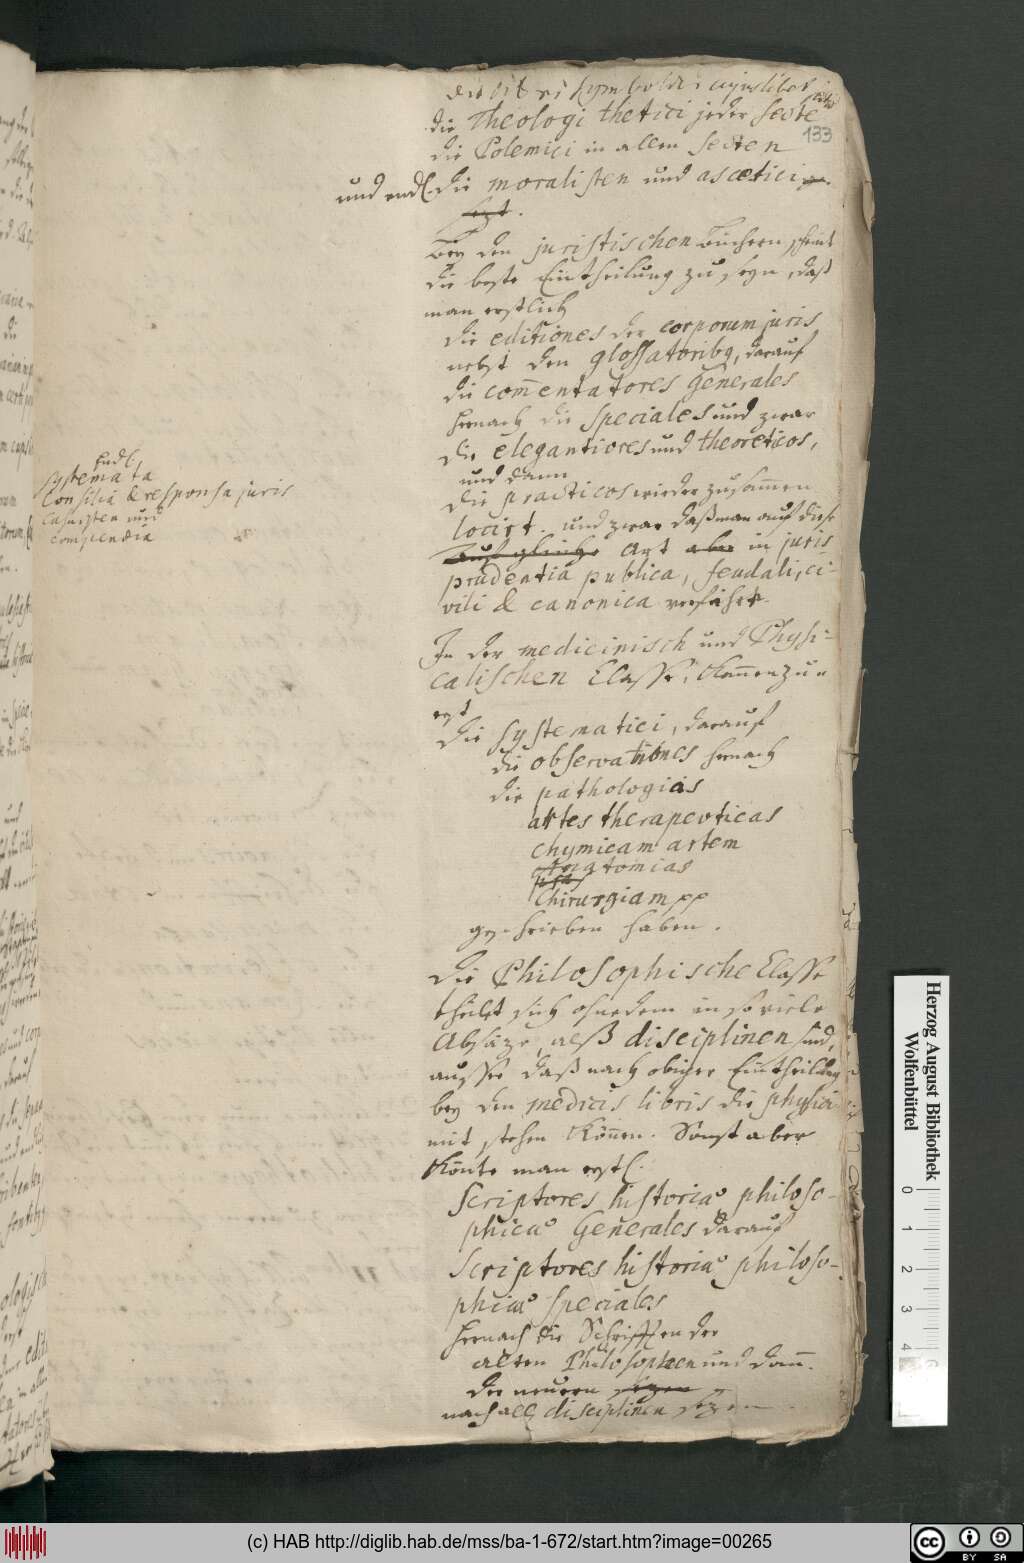 die libri symbolici cujuslibet
die Theologi thetici jeder Secte
133
die Polemici in allen Secten
und endl. die moralisten und ascetici
Bey den juristischen Büchern scheint
die beste Eintheilung zu seyn, daß
man erstlich
die editiones der corporum juris
nebst den glossatoribq, darauf
die com̄entatores Generales
hernach die speciales und zwar
die elegantiores und theoreticos,
und dann
die practicos wieder zusam̄en
locirt. und zwar daß man auf diese
auf gleiche Art aber in juris
prudentia publica, feudali, ci-
vili & canonica verfährt.
Endl.
systemata
Consilia & responsa juris
Casuisten und
Compendia
In der medicinisch und Physi-
calischen Classe, kam̄en zu
erst
die systematici, darauf
die observationes hernach
die pathologias
artes therapevticas
chymicam artem
Anatomias
Chirurgiam pp
geschrieben haben.
Die Philosophische Classe
theilet sich ohnedem in so viele
Absäze, alß disciplinen sind,
ausser daß nach obiger Eintheilung
bey den medicis libris die physici
mit stehen können. Sonst aber
könte man erstl.
Scriptores historiae philoso-
phicae Generales darauf
Scriptores historiae philoso-
phicae speciales
hernach die Schrifften der
alten Philosophen und dan̄.
der neuern sezen
nach all disciplinen sezen
Herzog August Bibliothek
Wolfenbüttel
0 1 2 3 4
(c) HAB http://diglib.hab.de/mss/ba-1-672/start.htm?image=00265
cc BY SA